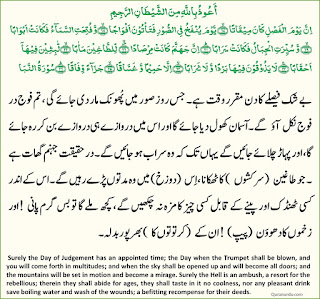 أَعُوذُ بِاللَّهِ مِنَ الشَّيْطَانِ الرَّجِيمِ
إِنَّ يَوْمَ الْفَصْلِ كَانَ مِيقَاتًا ﴿١٧﴾ يَوْمَ يُنفَخُ فِي الصُّورِ فَتَأْتُونَ أَفْوَاجًا ﴿١٨﴾ وَفُتِحَتِ السَّمَاءُ فَكَانَتْ أَبْوَابًا
﴿١٩﴾ وَسُيِّرَتِ الْجِبَالُ فَكَانَتْ سَرَابًا ﴿٢٠﴾ إِنَّ جَهَنَّمَ كَانَتْ مِرْصَادًا ﴿٢١﴾ لِّلطَّاغِينَ مَآبًا ﴿٢٢﴾ لَّابِثِينَ فِيهَا
أَحْقَابًا ﴿٢٣﴾ لَّا يَذُوقُونَ فِيهَا بَرْدًا وَلَا شَرَابًا ﴿٢٤﴾ إِلَّا حَمِيمًا وَغَسَّاقًا ﴿٢٥﴾ جَزَاءً وِفَاقًا ﴿٢٦﴾ سُورَةُ النَّبَا
بے شک فیصلے کا دن مقرر وقت ہے۔ جس روز صور میں پھونک مار دی جائے گی، تم فوج در
فوج نکل آؤ گے۔ آسمان کھول دیا جائے گا اور اس میں دروازے ہی دروازے بن کر رہ جائے
گا، اور پہاڑ چلائے جائیں گے یہاں تک کہ وہ سراب ہو جائیں گے۔ در حقیقت جہنم گھات ہے
، جو طاغین (سرکشوں) کا ٹھکانا، اِس (دوزخ) میں وہ مدتوں پڑے رہیں گے۔ اس کے اندر
کسی ٹھنڈک اور پینے کے قابل کسی چیز کا مزہ نہ چکھیں گے، کچھ ملے گا تو بس گرم پانی! اور
زخموں کا دھوؤن (پیپ)! ان کے (کرتوتوں کا) بھرپور بدلہ۔
Surely the Day of Judgement has an appointed time; the Day when the Trumpet shall be blown, and
you will come forth in multitudes; and when the sky shall be opened up and will become all doors; and
the mountains will be set in motion and become a mirage. Surely the Hell is an ambush, a resort for the
rebellious; therein they shall abide for ages, they shall taste in it no coolness, nor any pleasant drink
save boiling water and wash of the wounds; a befitting recompense for their deeds.